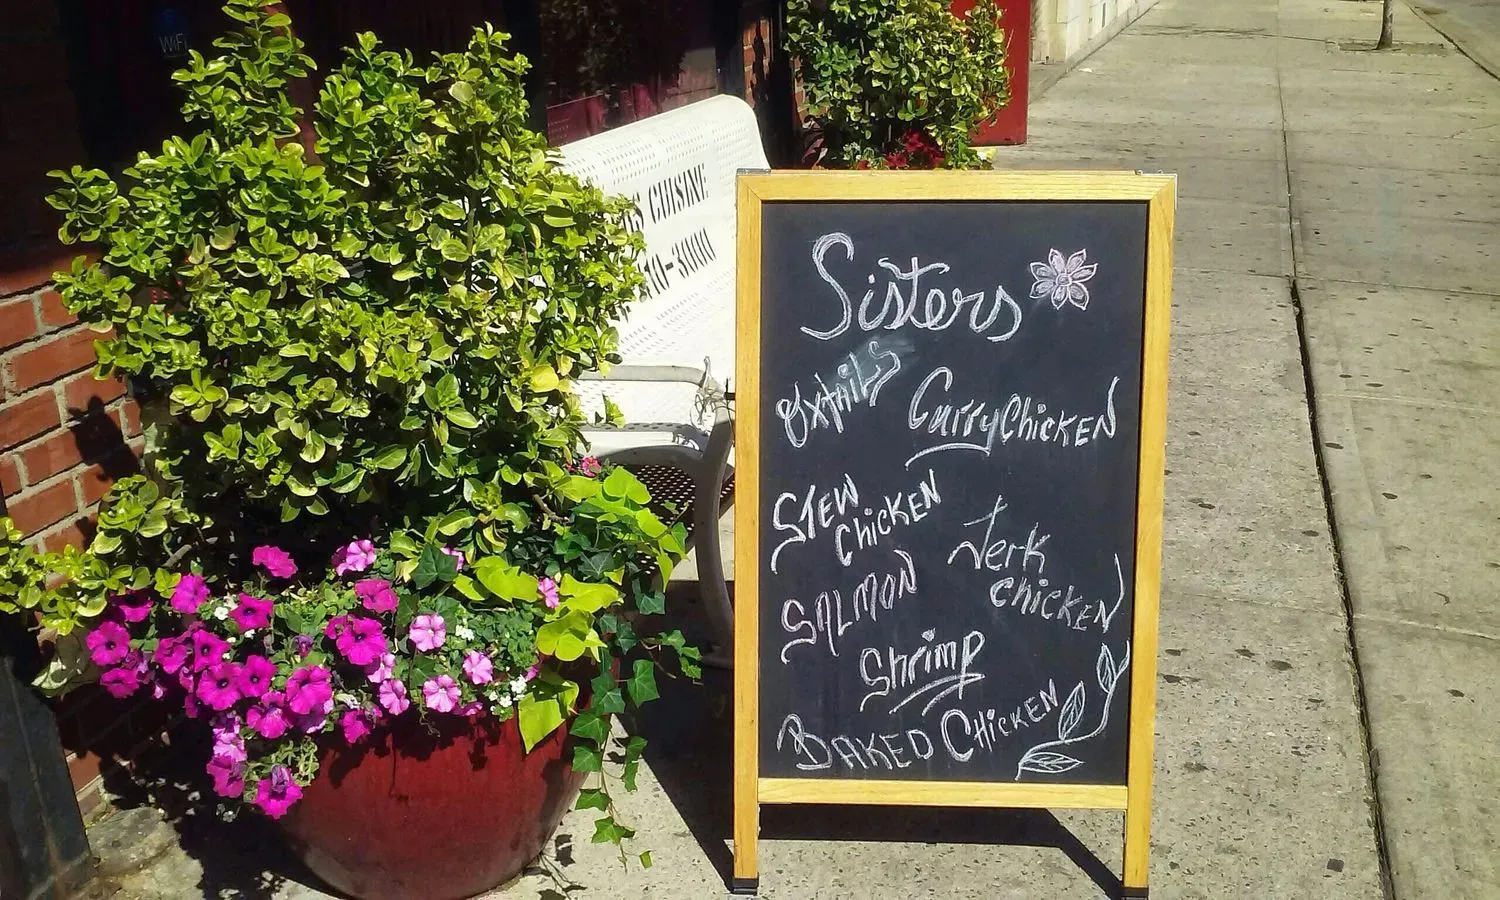 WiFi
S CUISINE
10-3000
Sisters
OxtAiLS
CurryChicKEN
STEW
ChicKEN
Jerk
chicKEN
SALMON
Shrimp
BAKED ChicKEN